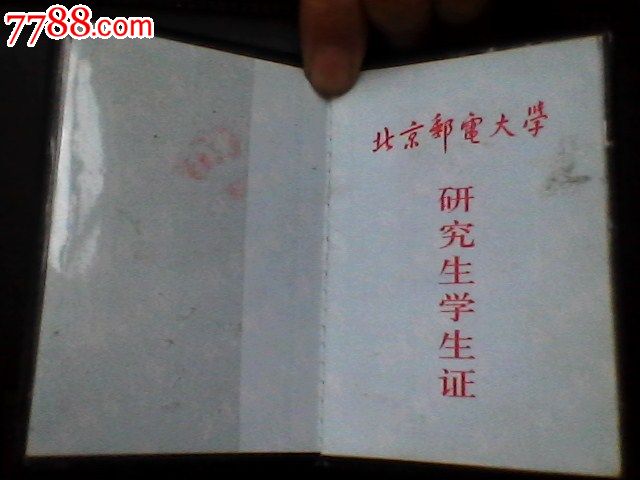 7788.com
北京郵電大學
研究生学生证